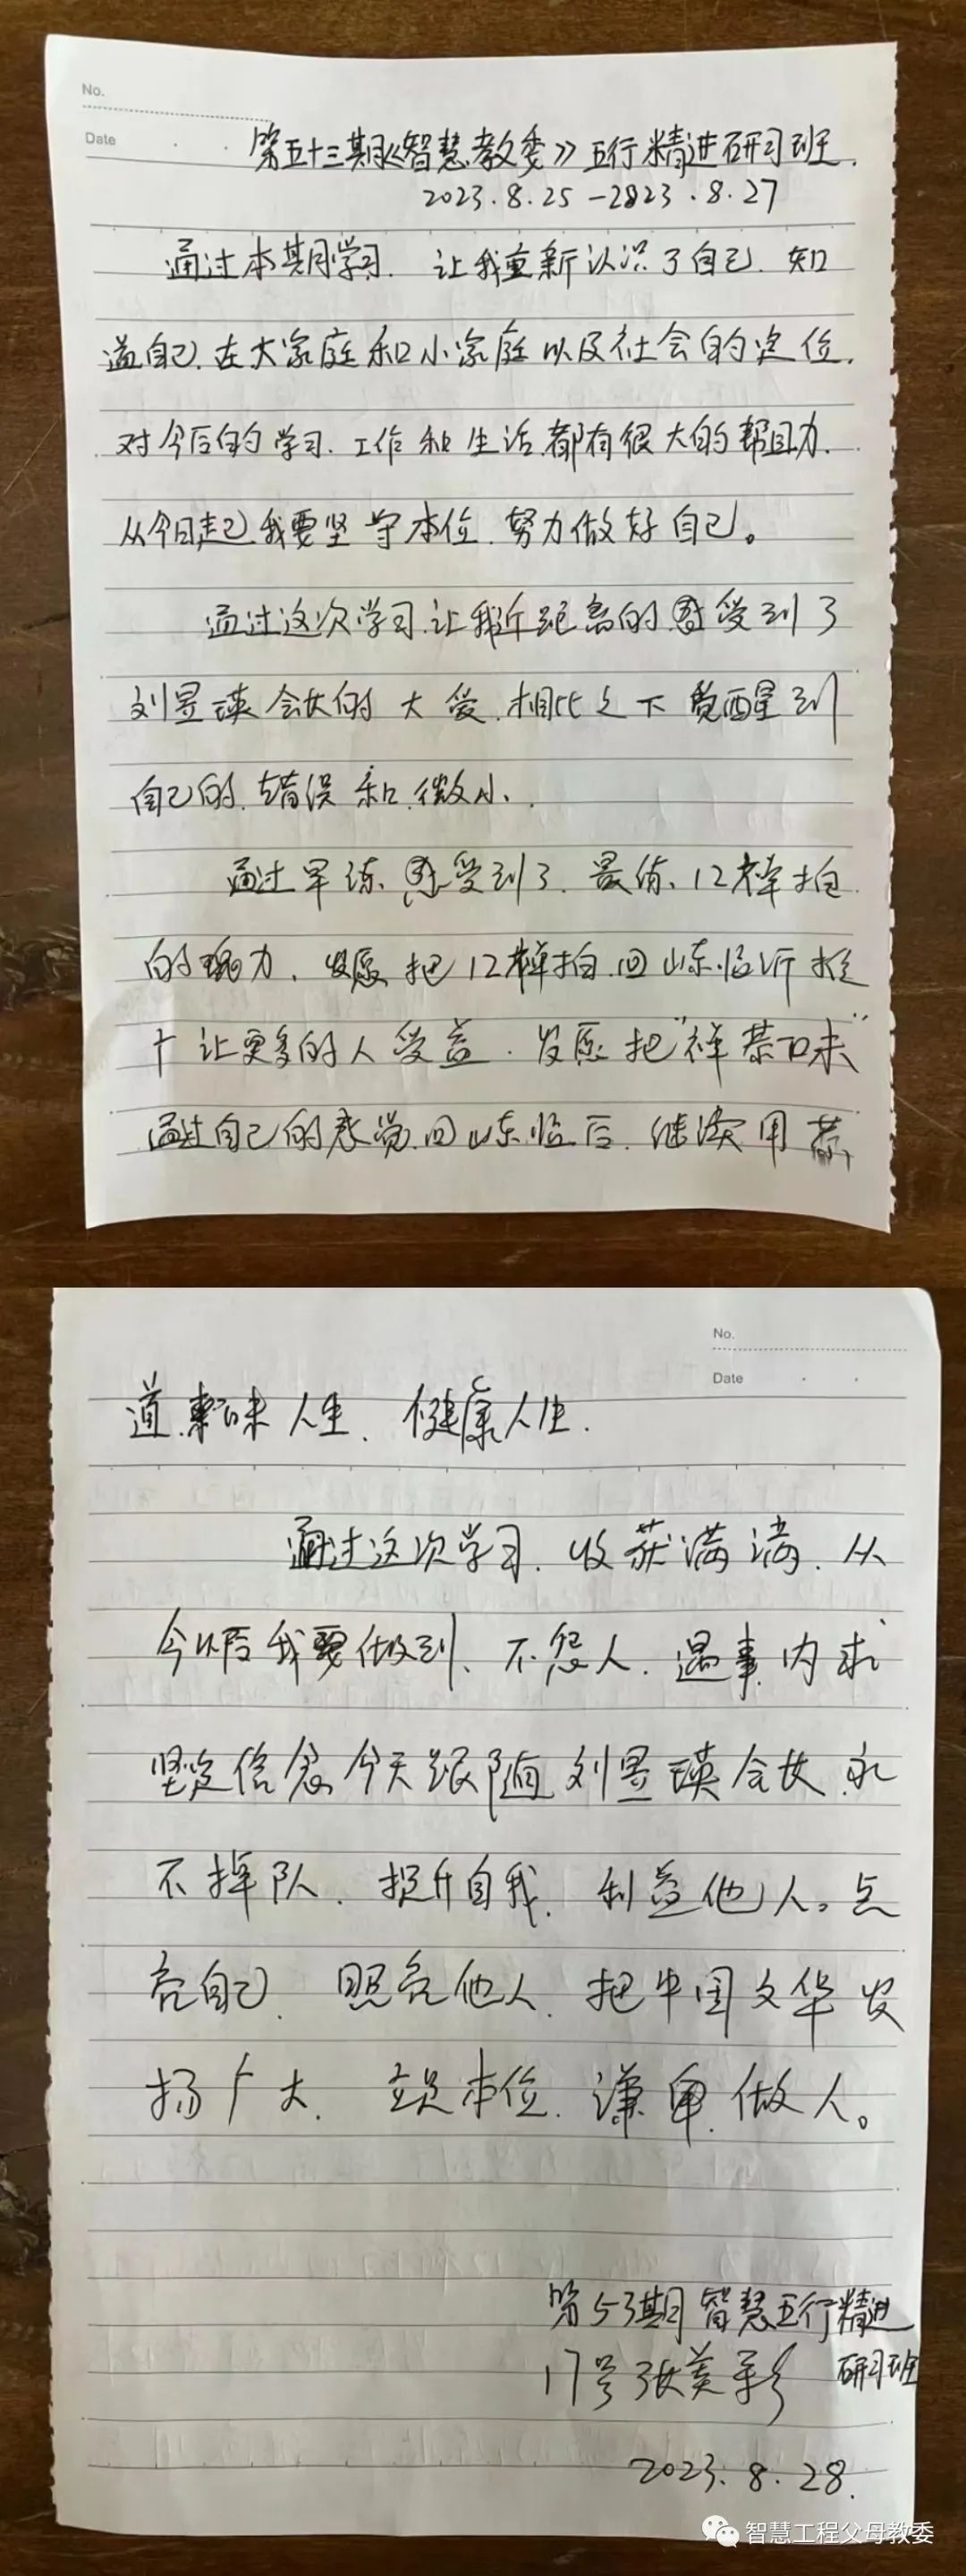 No.
Date
第五十三期《智慧教委》五行精进研习班.
2023.8.25-2023.8.27
通过本期学习.让我重新认识了自己.知
道自己.在大家庭和小家庭以及社会的定位.
对今后的学习.工作和生活.都有很大的帮助.
从今日起.我要坚守本位.努力做好自己。
通过这次学习.让我近距离的感受到了
刘昱瑛会长的大爱.相比之下觉醒到
自己的.错误和.微小.
通过早练.感受到了.最佳.12禅拍
的魂力.发愿把12禅拍.回山东临沂推
广让更多的人受益.发愿把"禅茶口味"
通过自己的感觉.回山东临后.继续用茶
道.禅味人生.健康人生.
通过这次学习.收获满满.从
今以后我要做到.不怨人.遇事内求
坚定信念今天跟随刘昱瑛会长.永
不掉队.提升自我.利益他人。点
亮自己.照亮他人.把中国文华发
扬广大.立足本位.谦卑.做人。
第53期智慧五行精进
研习班
17号张美彩
2023.8.28.
智慧工程父母教委